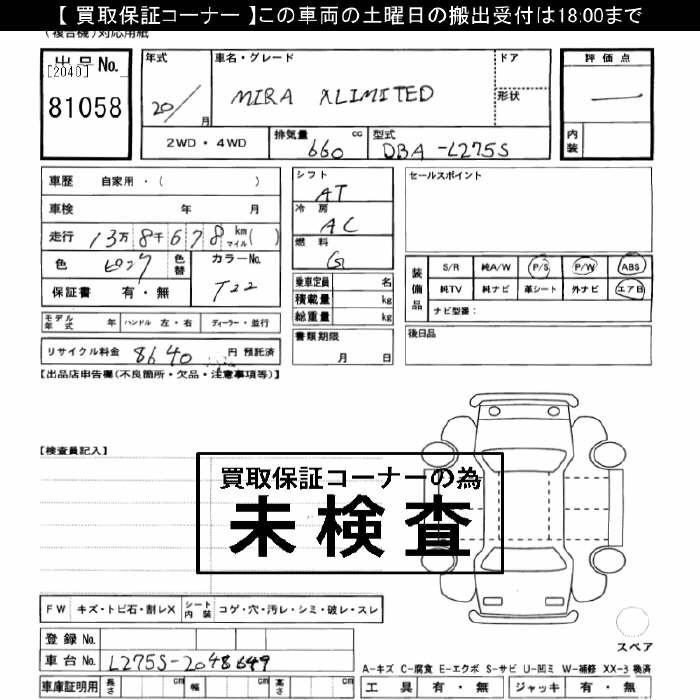 【 買取保証コーナー 】この車両の土曜日の搬出受付は18:00まで
(複合機)対応用紙
出品No.
[2040]
81058
年式
20/ 月
車名・グレード
MIRA XLIMITED
ドア
形状
評価点
一
内装
2WD・4WD
排気量 660 cc
型式 DBA-L275S
車歴 自家用・( )
車検 年 月
走行 13万8千678 km マイル( )
色 ピンク 色替
カラーNo. T22
保証書 有・無
モデル年式 年 ハンドル 左・右 ディーラー・並行
リサイクル料金 8640 円 預託済
シフト
AT
冷房
AC
燃料
G
乗車定員 名
積載量 kg
総重量 kg
書類期限
月 日
セールスポイント
装備品
S/R 純A/W P/S P/W ABS
純TV 純ナビ 革シート 外ナビ エアB
ナビ型番:
後日品
【出品店申告欄(不良箇所・欠品・注意事項等)】
【検査員記入】
買取保証コーナーの為
未検査
FW キズ・トビ石・割レX シート内装 コゲ・穴・汚レ・シミ・破レ・スレ
登録No.
車台No. L275S-2048649
車庫証明用 長さ cm 幅 cm 高さ cm
スペア
A-キズ C-腐食 E-エクボ S-サビ U-凹ミ W-補修 XX-3 換済
工具 有・無 ジャッキ 有・無